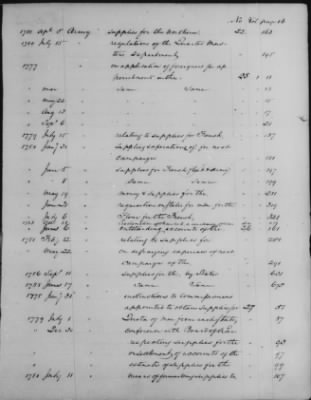 No Vol page
1780 Sept 5 Army Supplies for the Northern 22 163
1780 July 15 " regulations of the Quarter Mas-
ters Department 145
1777 on application of foreigners for ap
pointment in the 25 1 11
" mar Same Same 13
" may 20 " 15
" Aug 13 " 17
" Sept 6 " 21
1779 July 15 " relating to supplies for French 137
1780 Jany 31 " Supplies & operations of for next
Campaign 181
" Jan 5 " Supplies for French fleet & army 197
" " 8 " Same Same 199
" May 19 " money & supplies for the 281
" June 2 " requisition on States for men for the 309
" July 6 " Flour for the French 321
" June 6 " outstanding accounts of the 26 161
1781 Feby 12 " relating to supplies for 201
" May 22 " on defraying expenses of next
campaign of the 291
1786 Sept 11 " supplies for the by States 631
1785 June 17 " Same Same 673
1778 Jany 31 " instructions to commissioners
appointed to obtain supplies for 27 51
1779 July 1 " Quota of men from each State 37
" Dec 30 " conference with Board of War
respecting supplies for the 93
on settlement of accounts of the 97
estimate of supplies for the 99
1780 July 11 " means of forwarding supplies to 107